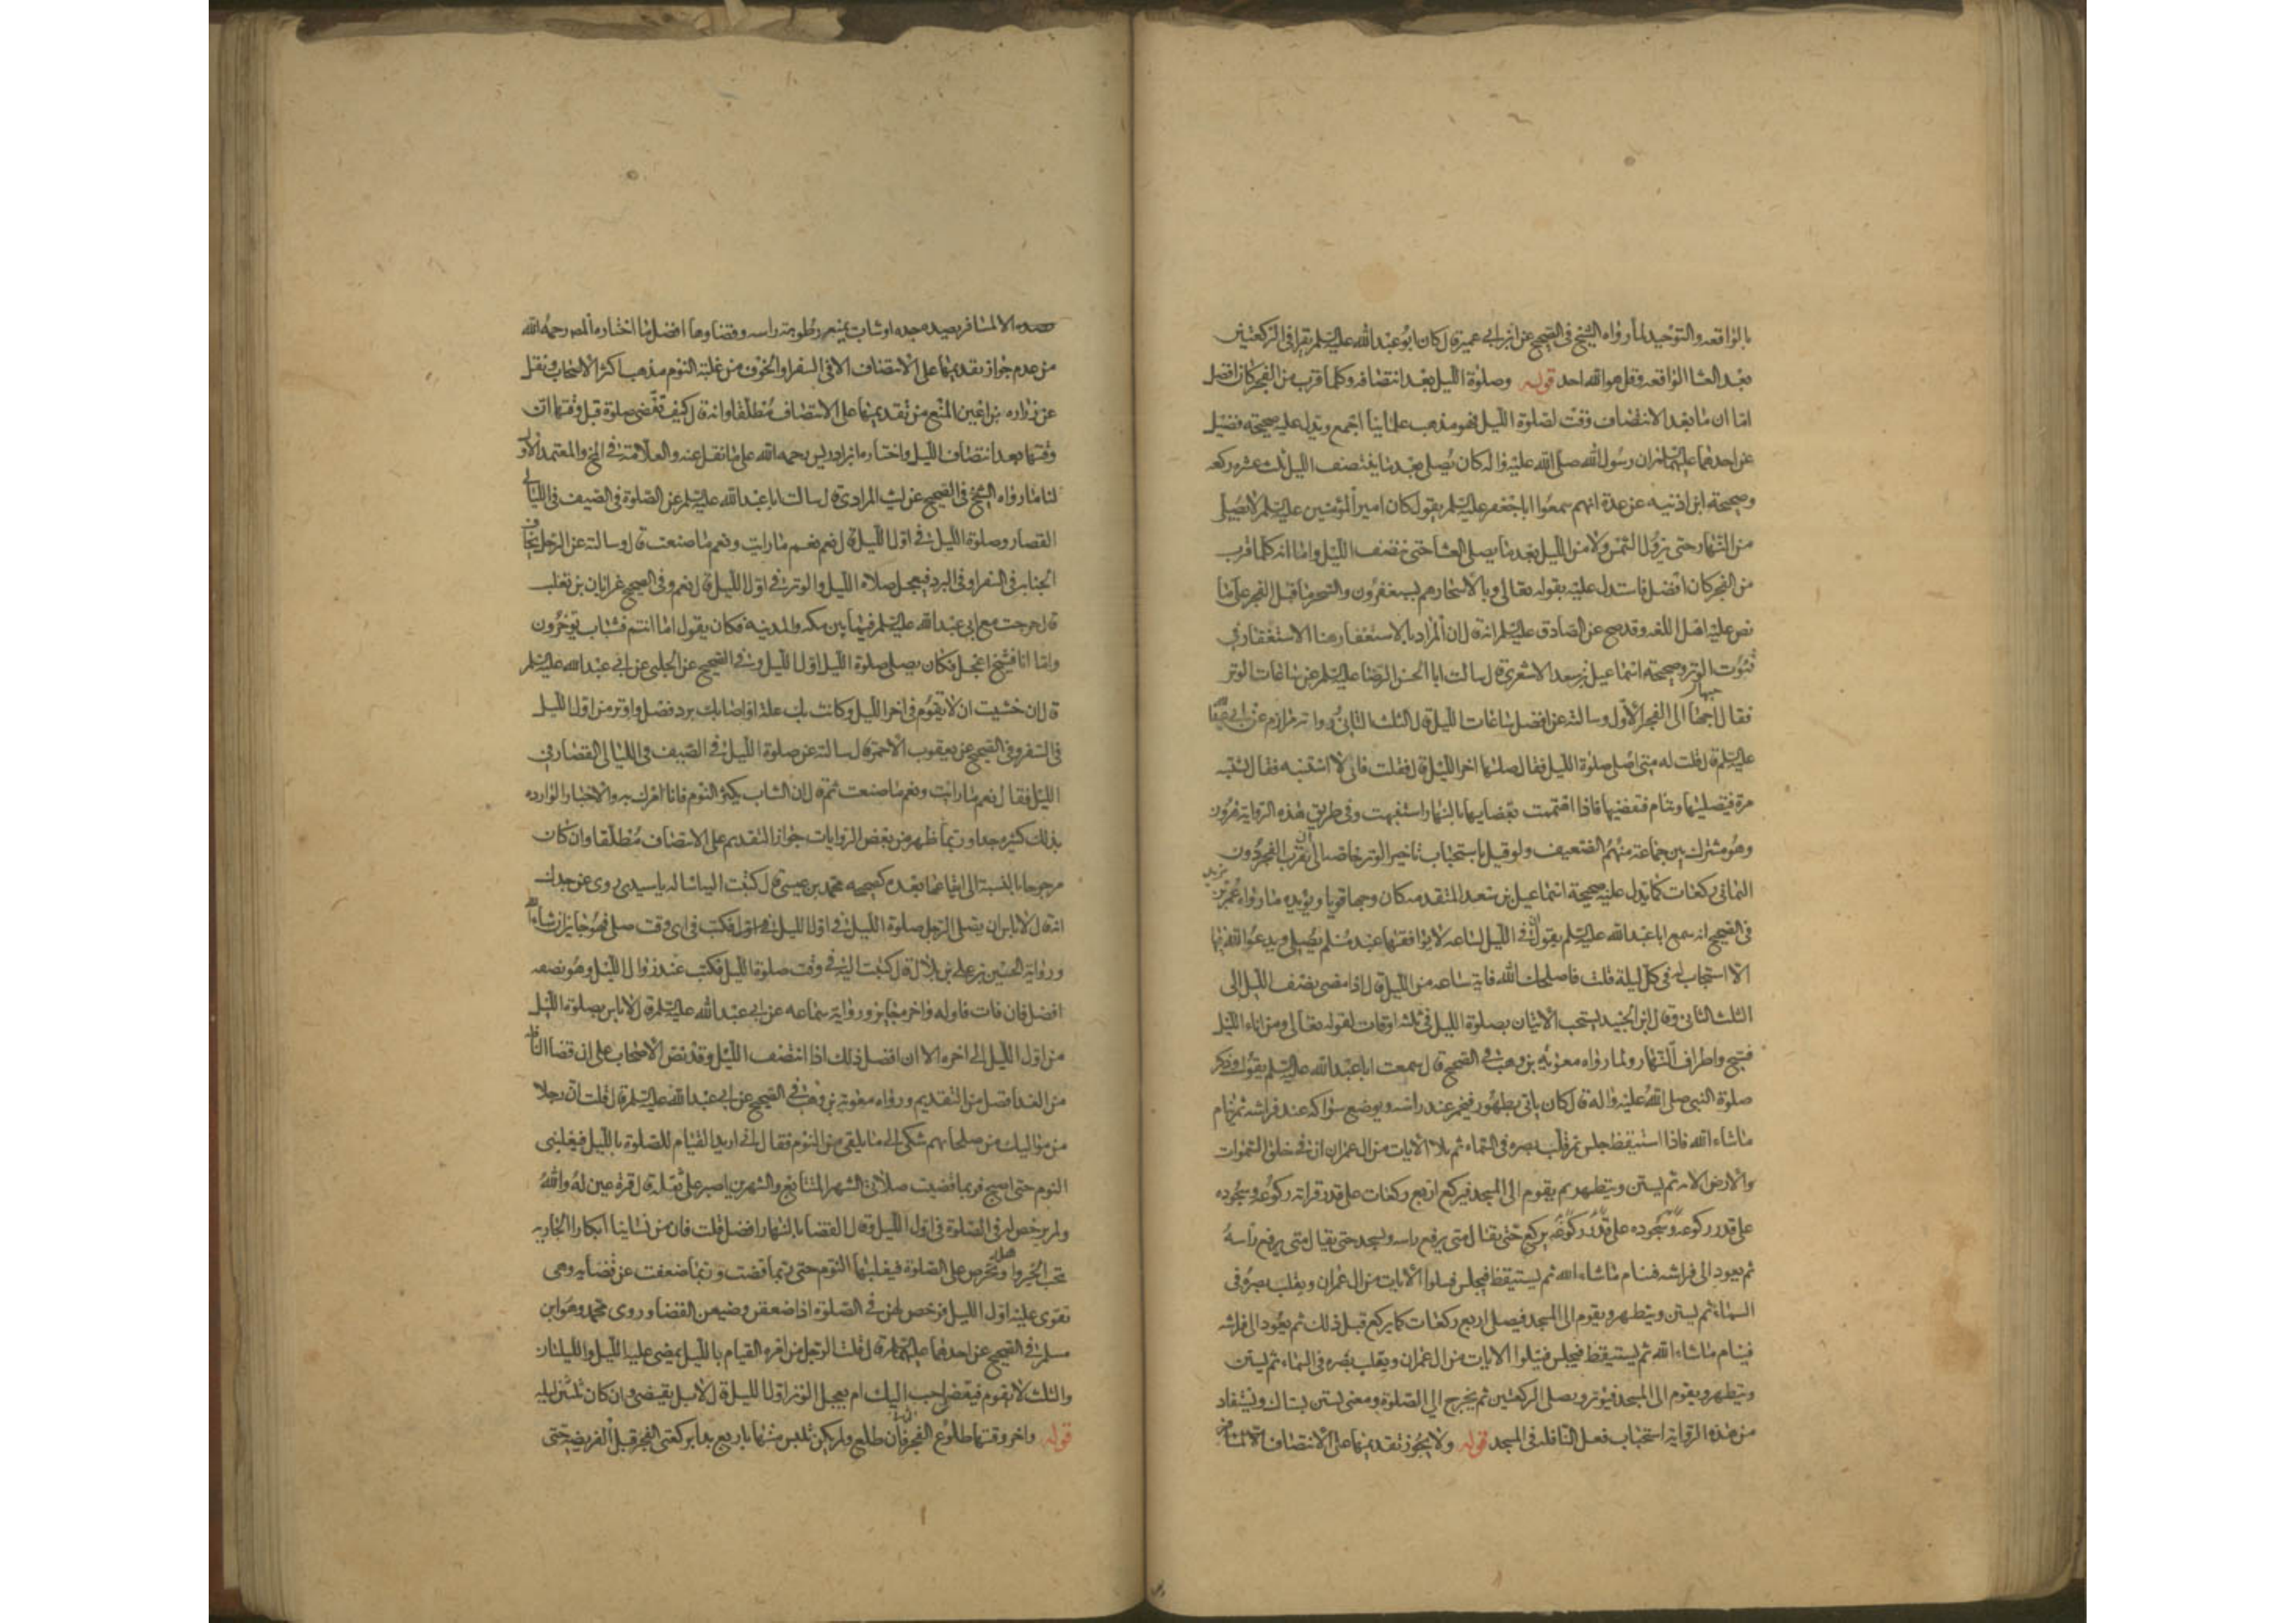 بالواقعه والتوحيد لما رواه الشيخ فى الصحيح عن ابن ابى عمير قال كان ابو عبد الله عليه السلم يقرا فى الركعتين
بعد العشا الواقعه وقل هو الله احد قوله وصلوة الليل بعد انتصافه وكلما قرب من الفجر كان افضل
اما ان ما بعد الانتصاف وقت لصلوة الليل فهو مذهب علمائنا اجمع ويدل عليه صحيحة فضيل
عن احدهما عليهما السلم ان رسول الله صلى الله عليه واله كان يصلى بعد ما ينتصف الليل ثلث عشره ركعه
وصحيحة ابن اذينه عن عدة انهم سمعوا ابا جعفر عليه السلم يقول كان امير المؤمنين عليه السلم لا يصلى
من النهار حتى يزول الشمس ولا من الليل بعد ما يصلى العشا حتى ينتصف الليل واما انه كلما قرب
من الفجر كان افضل فاستدل عليه بقوله تعالى وبالاسحار هم يستغفرون والسحر ما قبل الفجر على ما
نص عليه اهل اللغه وقد صح عن الصادق عليه السلم انه قال ان المراد بالاستغفار هنا الاستغفار فى
قنوت الوتر وصحيحة اسماعيل بن سعد الاشعرى قال سالت ابا الحسن الرضا عليه السلم عن ساعات الوتر
فقال احبها الى الفجر الاول وسالته عن افضل ساعات الليل قال الثلث الثانى ورواته مرازم عن ابى عبد الله
عليه السلم قال قلت له متى اصلى صلوة الليل فقال صلها اخر الليل قال فقلت فانى لا استنبه فقال تستنبه
مرة فتصليها وتنام فتقضيها فاذا اهتممت بقضايها بالنهار استنبهت وفى طريق هذه الرواية هرون
وهو مشترك بين جماعة منهم الضعيف ولو قيل باستحباب تاخير الوتر خاصه الى ان يقرب الفجر دون
الثمانى ركعات كما يدل عليه صحيحة اسماعيل بن سعد المتقدمه كان وجها قويا ويؤيده ما رواه عمر بن يزيد
فى الصحيح انه سمع ابا عبد الله عليه السلم يقول ان فى الليل لساعه لا يوافقها عبد مسلم يصلى ويدعوا الله فيها
الا استجاب له فى كل ليلة قلت فاصلحك الله فاية ساعه من الليل قال اذا مضى نصف الليل الى
الثلث الثانى وقال ابن الجنيد يستحب الاتيان بصلوة الليل فى ثلثه اوقات لقوله تعالى ومن اناء الليل
فسبح واطراف النهار ولما رواه معويه بن وهب فى الصحيح قال سمعت ابا عبد الله عليه السلم يقول وذكر
صلوة النبى صلى الله عليه واله قال كان ياتى بطهور فيخمر عند راسه ويوضع سواكه عند فراشه ثم ينام
ما شاء الله فاذا استيقظ جلس ثم قلب بصره فى السماء ثم تلا الايات من ال عمران ان فى خلق السموات
والارض الايه ثم يستن ويتطهر ثم يقوم الى المسجد فيركع اربع ركعات على قدر قراته ركوعه وسجوده
على قدر ركوعه وسجوده على قدر ركوعه يركع حتى يقال متى يرفع راسه ويسجد حتى يقال متى يرفع راسه
ثم يعود الى فراشه فينام ما شاء الله ثم يستيقظ فيجلس فيتلوا الايات من ال عمران ويقلب بصره فى
السماء ثم يستن ويتطهر ويقوم الى المسجد فيصلى اربع ركعات كما يركع قبل ذلك ثم يعود الى فراشه
فينام ما شاء الله ثم يستيقظ فيجلس فيتلوا الايات من ال عمران ويقلب بصره فى السماء ثم يستن
ويتطهر ويقوم الى المسجد فيوتر ويصلى الركعتين ثم يخرج الى الصلوة ومعنى يستن يستاك ويستفاد
من هذه الرواية استحباب فعل النافله فى المسجد قوله ولا يجوز تقديمها على الانتصاف الا لمسافر
الا لمسافر يصيده جده او شاب يمنعه رطوبة راسه وقضاوها افضل ما اختاره المصر رحمه الله
من عدم جواز تقديمها على الانتصاف الا فى السفر او الخوف من غلبة النوم مذهب اكثر الاصحاب ونقل
عن زراره بن اعين المنع من تقديمها على الانتصاف مطلقا وانه قال كيف تقضى صلوة قبل وقتها ان
وقتها بعد انتصاف الليل واختاره ابن ادريس رحمه الله على ما نقل عنه والعلامة فى المخ والمعتمد الاول
لنا ما رواه الشيخ فى الصحيح عن ليث المرادى قال سالت ابا عبد الله عليه السلم عن الصلوة فى الصيف فى الليالى
القصار وصلوة الليل فى اول الليل قال نعم نعم ما رايت ونعم ما صنعت قال وسالته عن الرجل يخاف
الجنابه فى السفر او فى البرد فيعجل صلاة الليل والوتر فى اول الليل قال نعم وفى الصحيح عن ابان بن تغلب
قال خرجت مع ابى عبد الله عليه السلم فيما بين مكه والمدينه فكان يقول اما انتم فشباب تؤخرون
واما انا فشيخ اعجل فكان يصلى صلوة الليل اول الليل وفى الصحيح عن الحلبى عن ابى عبد الله عليه السلم
قال ان خشيت ان لا تقوم فى اخر الليل وكانت بك علة او اصابك برد فصل واوتر من اول الليل
فى السفر وفى الصحيح عن يعقوب الاحمر قال سالته عن صلوة الليل فى الصيف فى الليالى القصار فى
الليل فقال نعم ما رايت ونعم ما صنعت ثم قال ان الشاب يكثر النوم فانا امرك به والاخبار الوارده
بذلك كثيره جدا وربما ظهر من بعض الروايات جواز التقديم على الانتصاف مطلقا وان كان
مرجوحا بالنسبة الى ايقاعها بعده كصحيحه محمد بن عيسى قال كتبت اليه اساله يا سيدى روى عن جدك
انه قال لا باس ان يصلى الرجل صلوة الليل فى اول الليل فكتب فى اى وقت صلى فهو جايز ان شاء الله
ورواية الحسين بن على بن بلال قال كتبت اليه فى وقت صلوة الليل فكتب عند زوال الليل وهو نصفه
افضل فان فات فاوله واخره جايز ورواية سماعه عن ابى عبد الله عليه السلم قال لا باس بصلوة الليل
من اول الليل الى اخره الا ان افضل ذلك اذا انتصف الليل وقد نص الاصحاب على ان قضا النافله
من الغد افضل من التقديم ورواه معوية بن وهب فى الصحيح عن ابى عبد الله عليه السلم قال قلت ان رجلا
من مواليك من صلحايهم شكى الى ما يلقى من النوم فقال انى اريد القيام للصلوة بالليل فيغلبنى
النوم حتى اصبح فربما قضيت صلاتى الشهر المتتابع والشهرين اصبر على ثقله قال قرة عين له والله
ولم يرخص له فى الصلوة فى اول الليل وقال القضا بالنهار افضل قلت فان من نسائنا ابكارا الجاريه
تحب الخير واهله وتحرص على الصلوة فيغلبها النوم حتى ربما قضت وربما ضعفت عن قضايه وهى
تقوى عليه اول الليل فرخص لهن فى الصلوة اذا ضعفن وضيعن القضا وروى محمد وهو ابن
مسلم فى الصحيح عن احدهما عليهما السلم قال قلت الرجل من امره القيام بالليل يمضى عليه الليله والليلتان
والثلث لا يقوم فيقضى احب اليك ام يعجل الوتر اول الليل قال لا بل يقضى وان كان ثلثين ليله
قوله واخر وقتها طلوع الفجر فان طلع ولم يكن تلبس منها باربع بدا بركعتى الفجر قبل الفريضه حتى